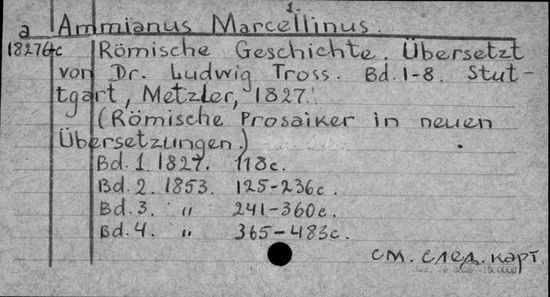 1.
a Ammianus Marcellinus.
18276c Römische Geschichte. Übersetzt
von Dr. Ludwig Tross. Bd. 1-8. Stut-
tgart, Metzler, 1827.
(Römische Prosaiker in neuen
Übersetzungen.)
Bd. 1. 1827. 118с.
Bd. 2. 1853. 125-236с.
Bd. 3. " 241-360с.
Bd. 4. " 365-483с.
см. след. карт.